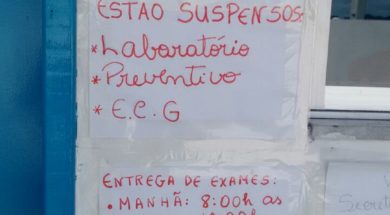 ESTÃO SUSPENSOS:
*Laboratório
*Preventivo
* E.C.G
ENTREGA DE EXAMES:
• MANHÃ: 8:00h as